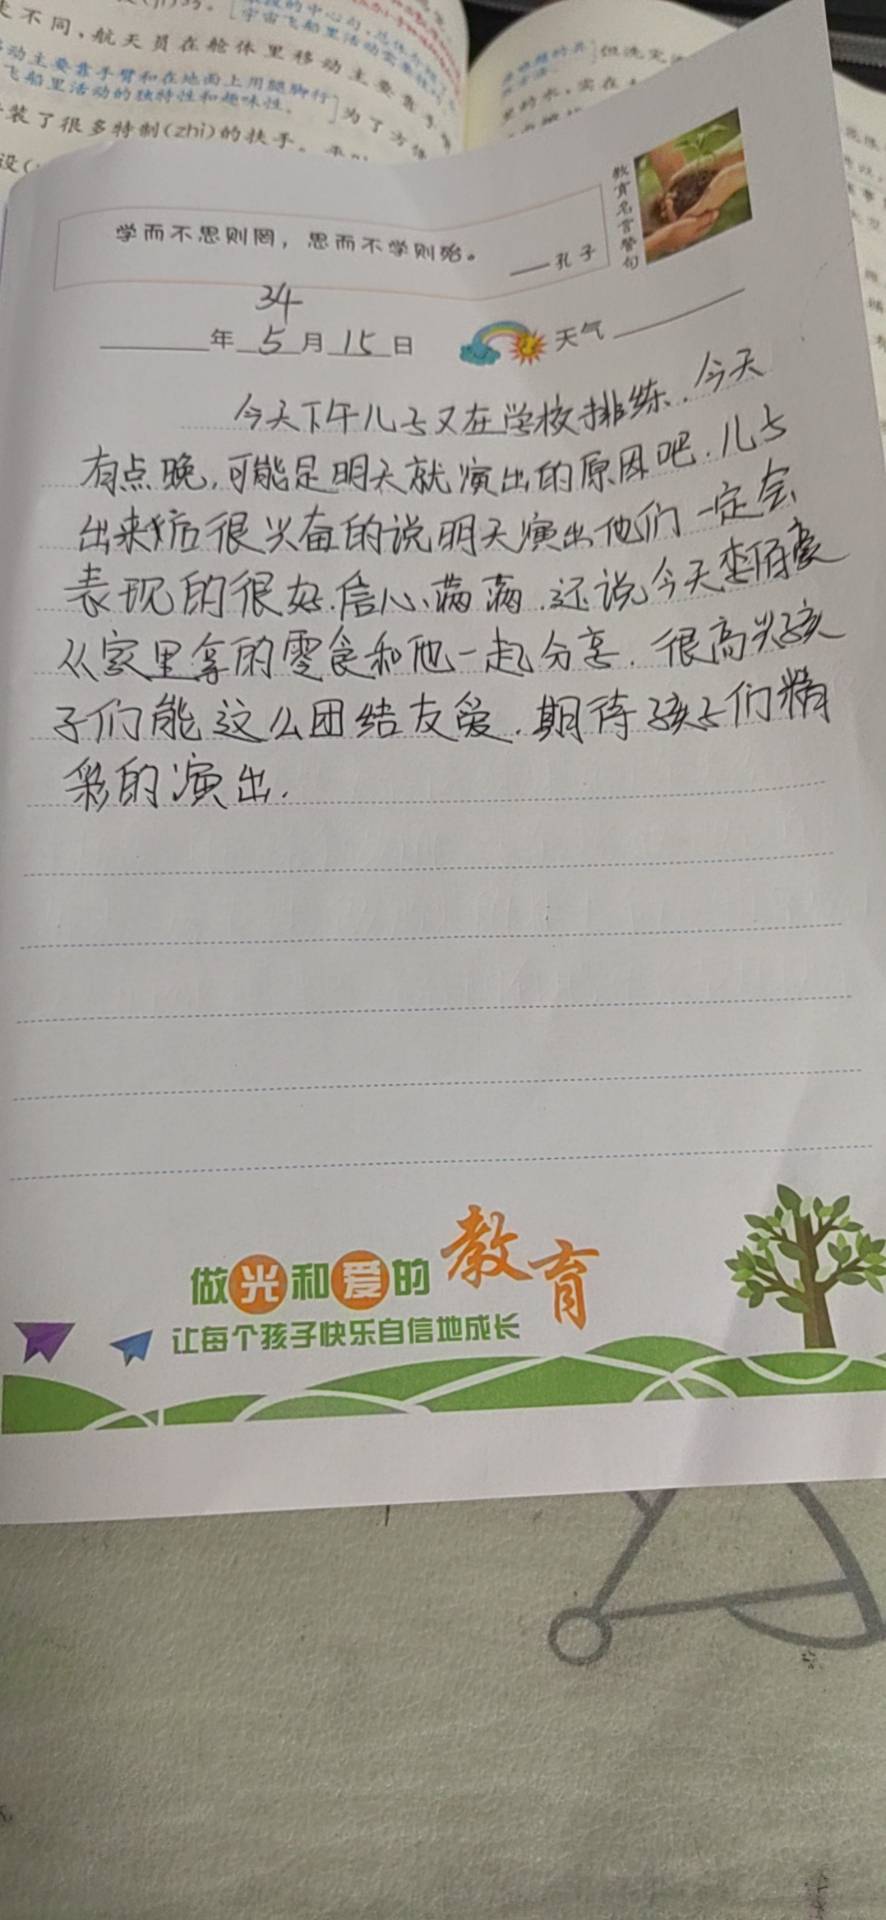 不同,航天员在舱体里移动主要靠手
动主要靠手臂和在地面上用腿脚行
飞船里活动的独特性和趣味性。
为了方便
装了很多特制(zhì)的扶手。
但洗完
学而不思则罔，思而不学则殆。
——孔子
教育名言警句
34
年 5 月 15 日 天气
今天下午儿子又在学校排练.今天
有点晚,可能是明天就演出的原因吧.儿子
出来后很兴奋的说明天演出他们一定会
表现的很好.信心满满.还说今天李佰豪
从家里拿的零食和他一起分享.很高兴孩
子们能这么团结友爱.期待孩子们精
彩的演出.
做光和爱的教育
让每个孩子快乐自信地成长